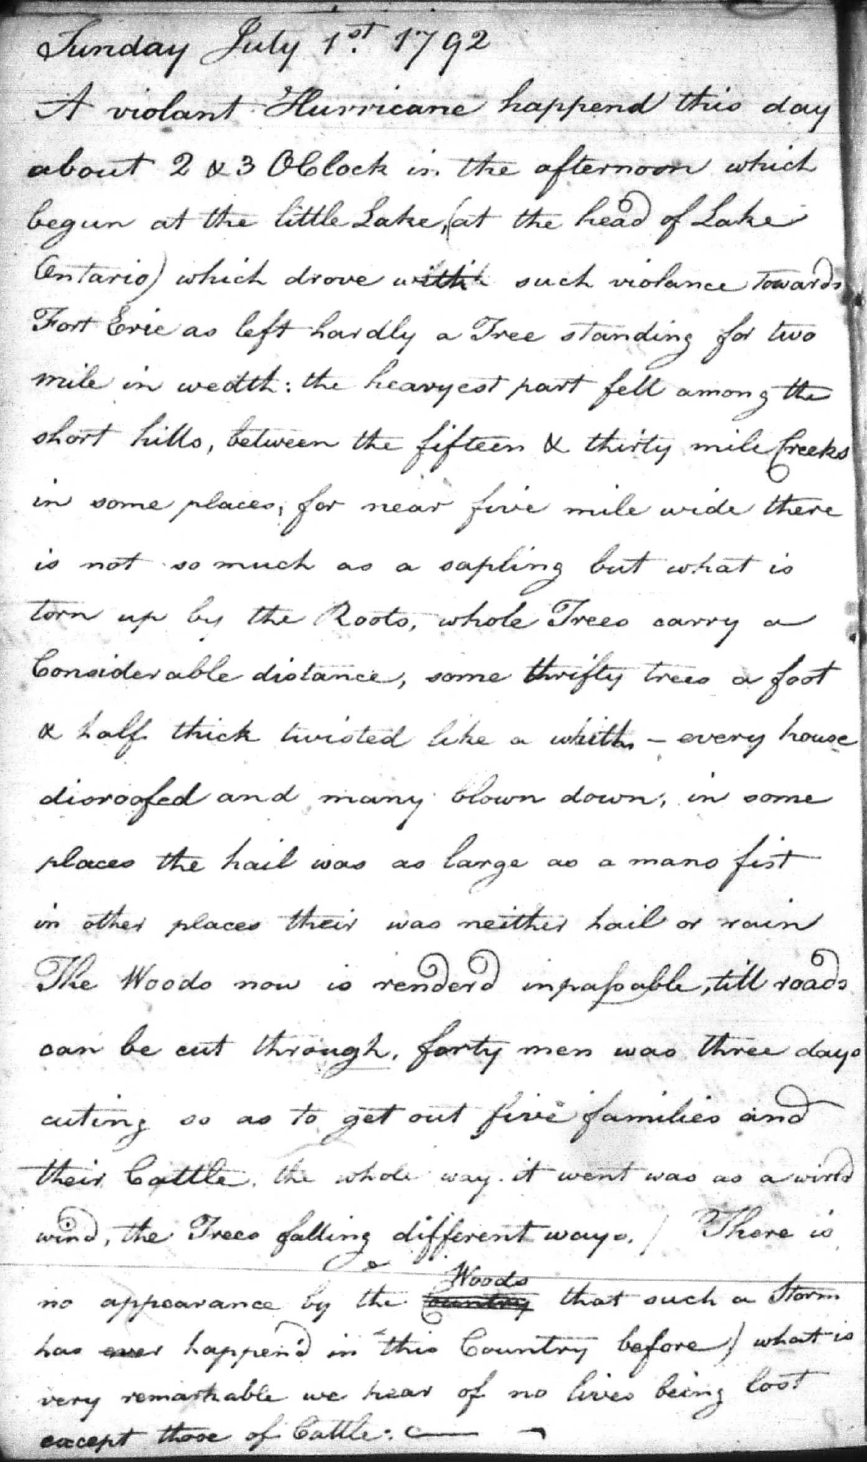 Sunday July 1st. 1792
A violant Hurricane happend this day
about 2 & 3 OClock in the afternoon which
begun at the little Lake, (at the head of Lake
Ontario) which drove with such violance towards
Fort Erie as left hardly a Tree standing for two
mile in wedth: the heavyest part fell among the
short hills, between the fifteen & thirty mile Creeks
in some places, for near five mile wide there
is not so much as a sapling but what is
torn up by the Roots, whole Trees carry a
Considerable distance, some thrifty trees a foot
& half thick twisted like a whith – every house
disroofed and many blown down, in some
places the hail was as large as a mans fist
in other places their was neither hail or rain
The Woods now is renderd inpassable, till roads
can be cut through, forty men was three days
cuting so as to get out five families and
their Cattle. the whole way it went was as a wirld
wind, the Trees falling different ways. / There is
no appearance by the Woods country that such a Storm
has ever happend in this Country before) what is
very remarkable we hear of no lives being lost
except those of Cattle: